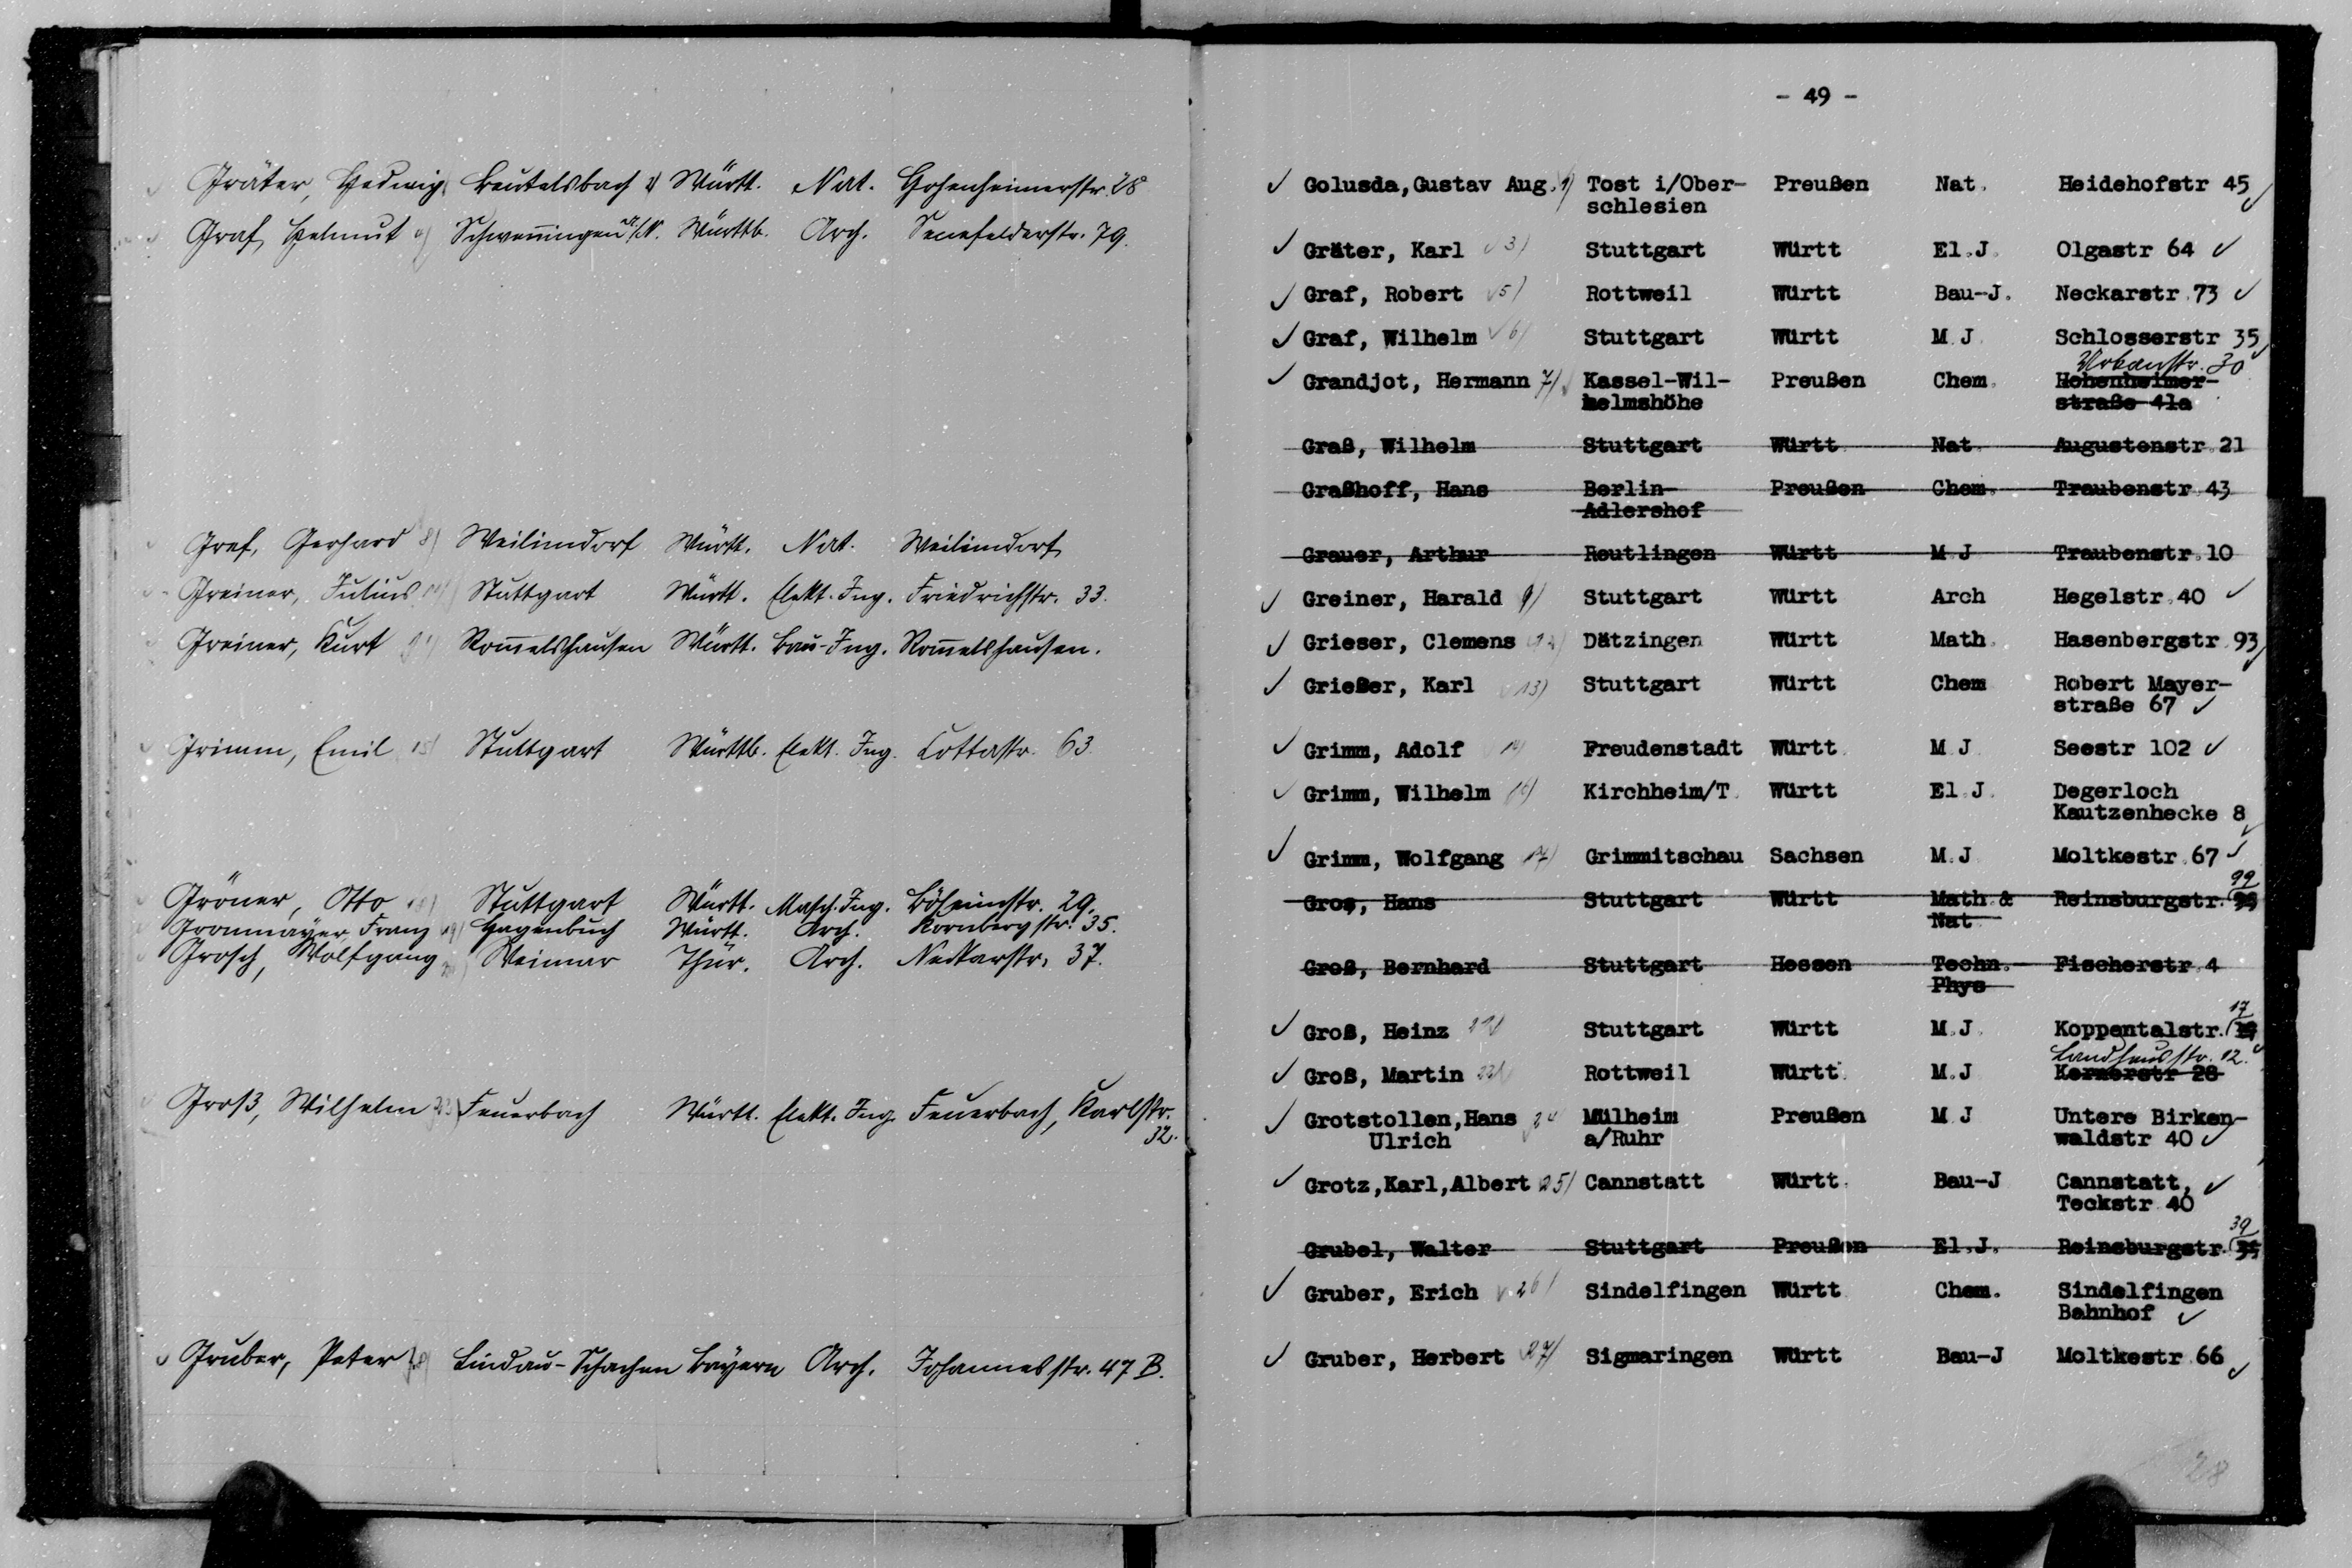 Gräter, Hedwig 2) Beutelsbach Württ. Nat. Hohenheimerstr. 28
Graf, Helmut 4) Schwenningen a/N. Württb. Arch. Senefelderstr. 79.
Graf, Gerhard 8) Weilimdorf Württ. Nat. Weilimdorf
Greiner, Julius Stuttgart Württ. Elekt. Ing. Friedrichstr. 33.
Greiner, Kurt Rom̅elshausen Württ. Bau-Ing. Rom̅elshausen.
Grimm, Emil 15) Stuttgart Württb. Elekt. Ing. Cottastr. 63
Gröner, Otto 18) Stuttgart Württ. Masch. Ing. Böheimstr. 29.
Gronmayer, Franz 19) Hagenbuch Württ. Arch. Kornbergstr. 35.
Grosch, Wolfgang 20) Weimar Thür. Arch. Neckarstr. 37.
Groß, Wilhelm 23) Feuerbach Württ. Elekt. Ing. Feuerbach, Karlstr.
32.
Gruber, Peter 28) Lindau-Schachen Bayern Arch. Johannesstr. 47 B.
- 49 -
Golusda, Gustav Aug. 1) Tost i/Ober- Preußen Nat. Heidehofstr 45
schlesien
Gräter, Karl 3) Stuttgart Württ El.J. Olgastr 64
Graf, Robert 5) Rottweil Württ Bau-J. Neckarstr. 73
Graf, Wilhelm 6) Stuttgart Württ M J. Schlosserstr 35
Urbanstr. 30
Grandjot, Hermann 7) Kassel-Wil- Preußen Chem. Hohenheimer-
helmshöhe straße 41a
Graß, Wilhelm Stuttgart Württ Nat. Augustenstr. 21
Graßhoff, Hans Berlin- Preußen Chem. Traubenstr. 43
Adlershof
Grauer, Arthur Reutlingen Württ M J Traubenstr. 10
Greiner, Harald 9) Stuttgart Württ Arch Hegelstr. 40
Grieser, Clemens 12) Dätzingen Württ Math. Hasenbergstr. 93
Grießer, Karl 13) Stuttgart Württ Chem Robert Mayer-
straße 67
Grimm, Adolf 14) Freudenstadt Württ. M J Seestr 102
Grimm, Wilhelm 16) Kirchheim/T. Württ El.J. Degerloch
Kautzenhecke 8
Grimm, Wolfgang 17) Grimmitschau Sachsen M.J Moltkestr. 67
99
Gros, Hans Stuttgart Württ Math & Reinsburgstr.
Nat
Groß, Bernhard Stuttgart Hessen Techn. Fischerstr. 4
Phys
17
Groß, Heinz 21) Stuttgart Württ M.J. Koppentalstr.
Landhausstr. 12.
Groß, Martin 22) Rottweil Württ. M.J Kernerstr 28
Grotstollen, Hans 24 Mülheim Preußen M J Untere Birken-
Ulrich a/Ruhr waldstr 40
Grotz, Karl, Albert 25) Cannstatt Württ. Bau-J Cannstatt,
Teckstr 40
39
Grubel, Walter Stuttgart Preußen El.J. Reinsburgstr.
Gruber, Erich 26) Sindelfingen Württ Chem. Sindelfingen
Bahnhof
Gruber, Herbert 27) Sigmaringen Württ Bau-J Moltkestr. 66
28